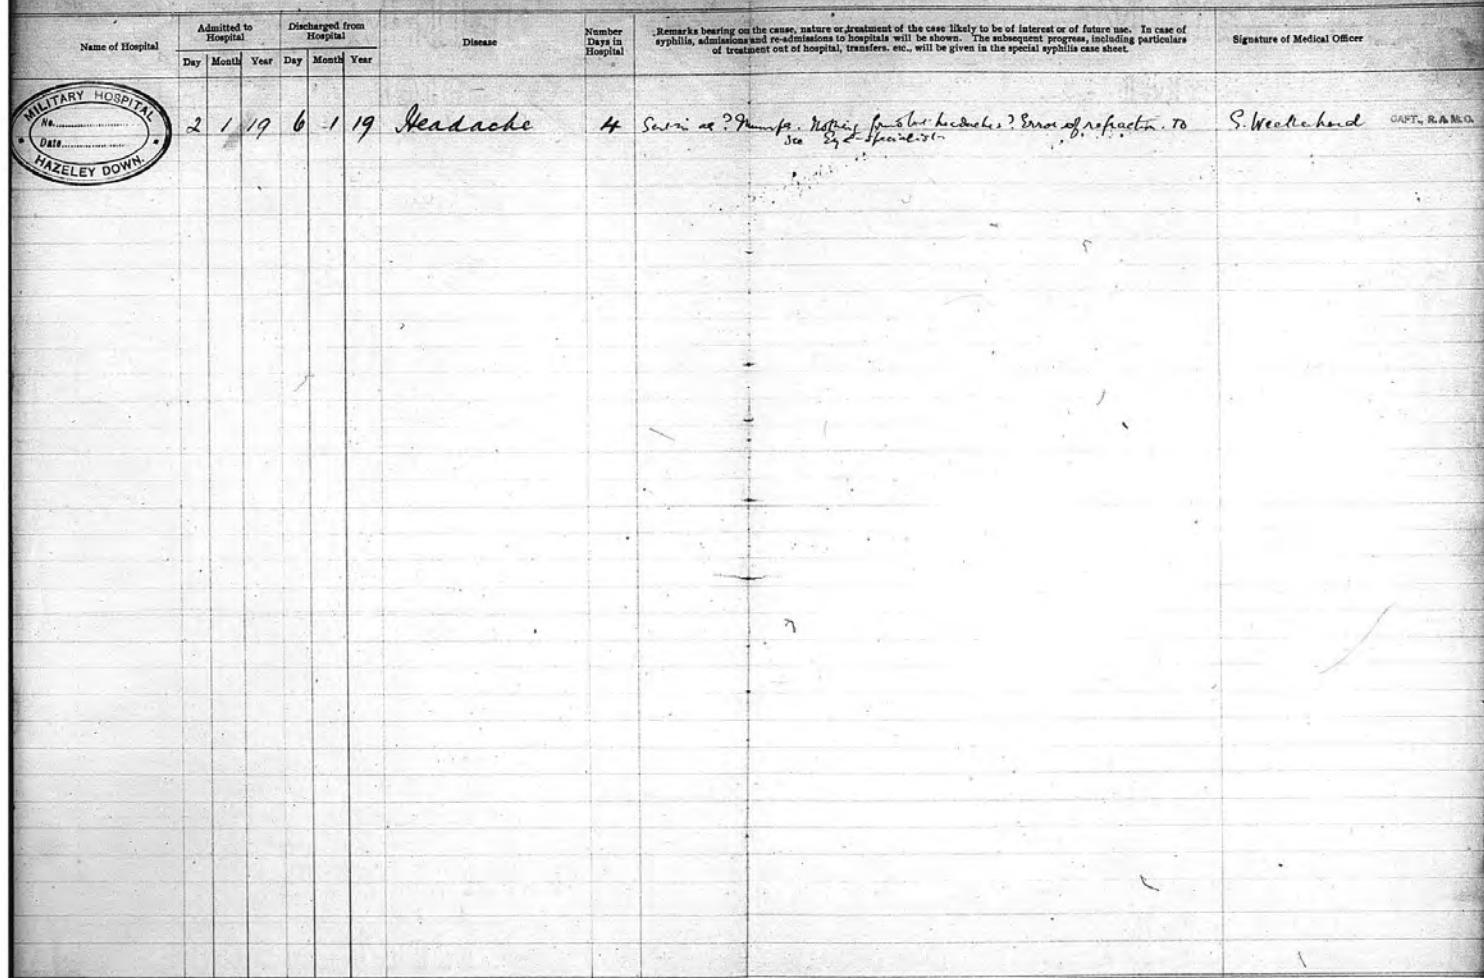 Name of Hospital
Admitted to
Hospital
Day Month Year
Discharged from
Hospital
Day Month Year
Disease
Number
Days in
Hospital
Remarks bearing on the cause, nature or treatment of the case likely to be of interest or of future use. In case of
syphilis, admissions and re-admissions to hospitals will be shown. The subsequent progress, including particulars
of treatment out of hospital, transfers, etc., will be given in the special syphilis case sheet.
Signature of Medical Officer
MILITARY HOSPITAL
No.
Date
HAZELEY DOWN.
2 1 19 6 1 19 Headache 4 Sent in as ? Mumps. Nothing found but headaches ? Error of refraction. To
see Eye-Specialist
CAPT., R.A.M.C.